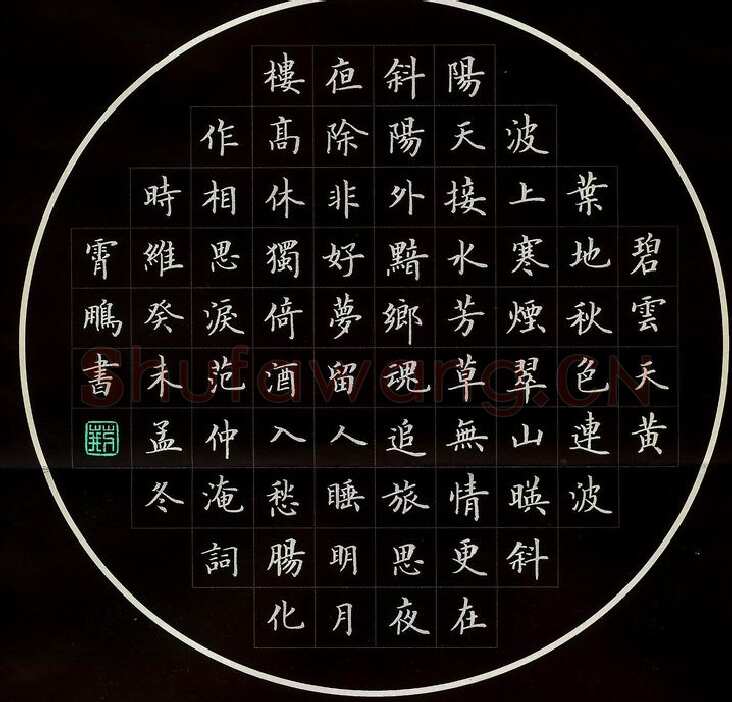 碧雲天黄
葉地秋色連波
波上寒煙翠山暎斜
陽天接水芳草無情更在
斜陽外黯鄉魂追旅思夜
亱除非好夢留人睡明月
樓髙休獨倚酒入愁腸化
作相思淚范仲淹詞
時維癸未孟冬
霄鵬書
Shufawang.CN